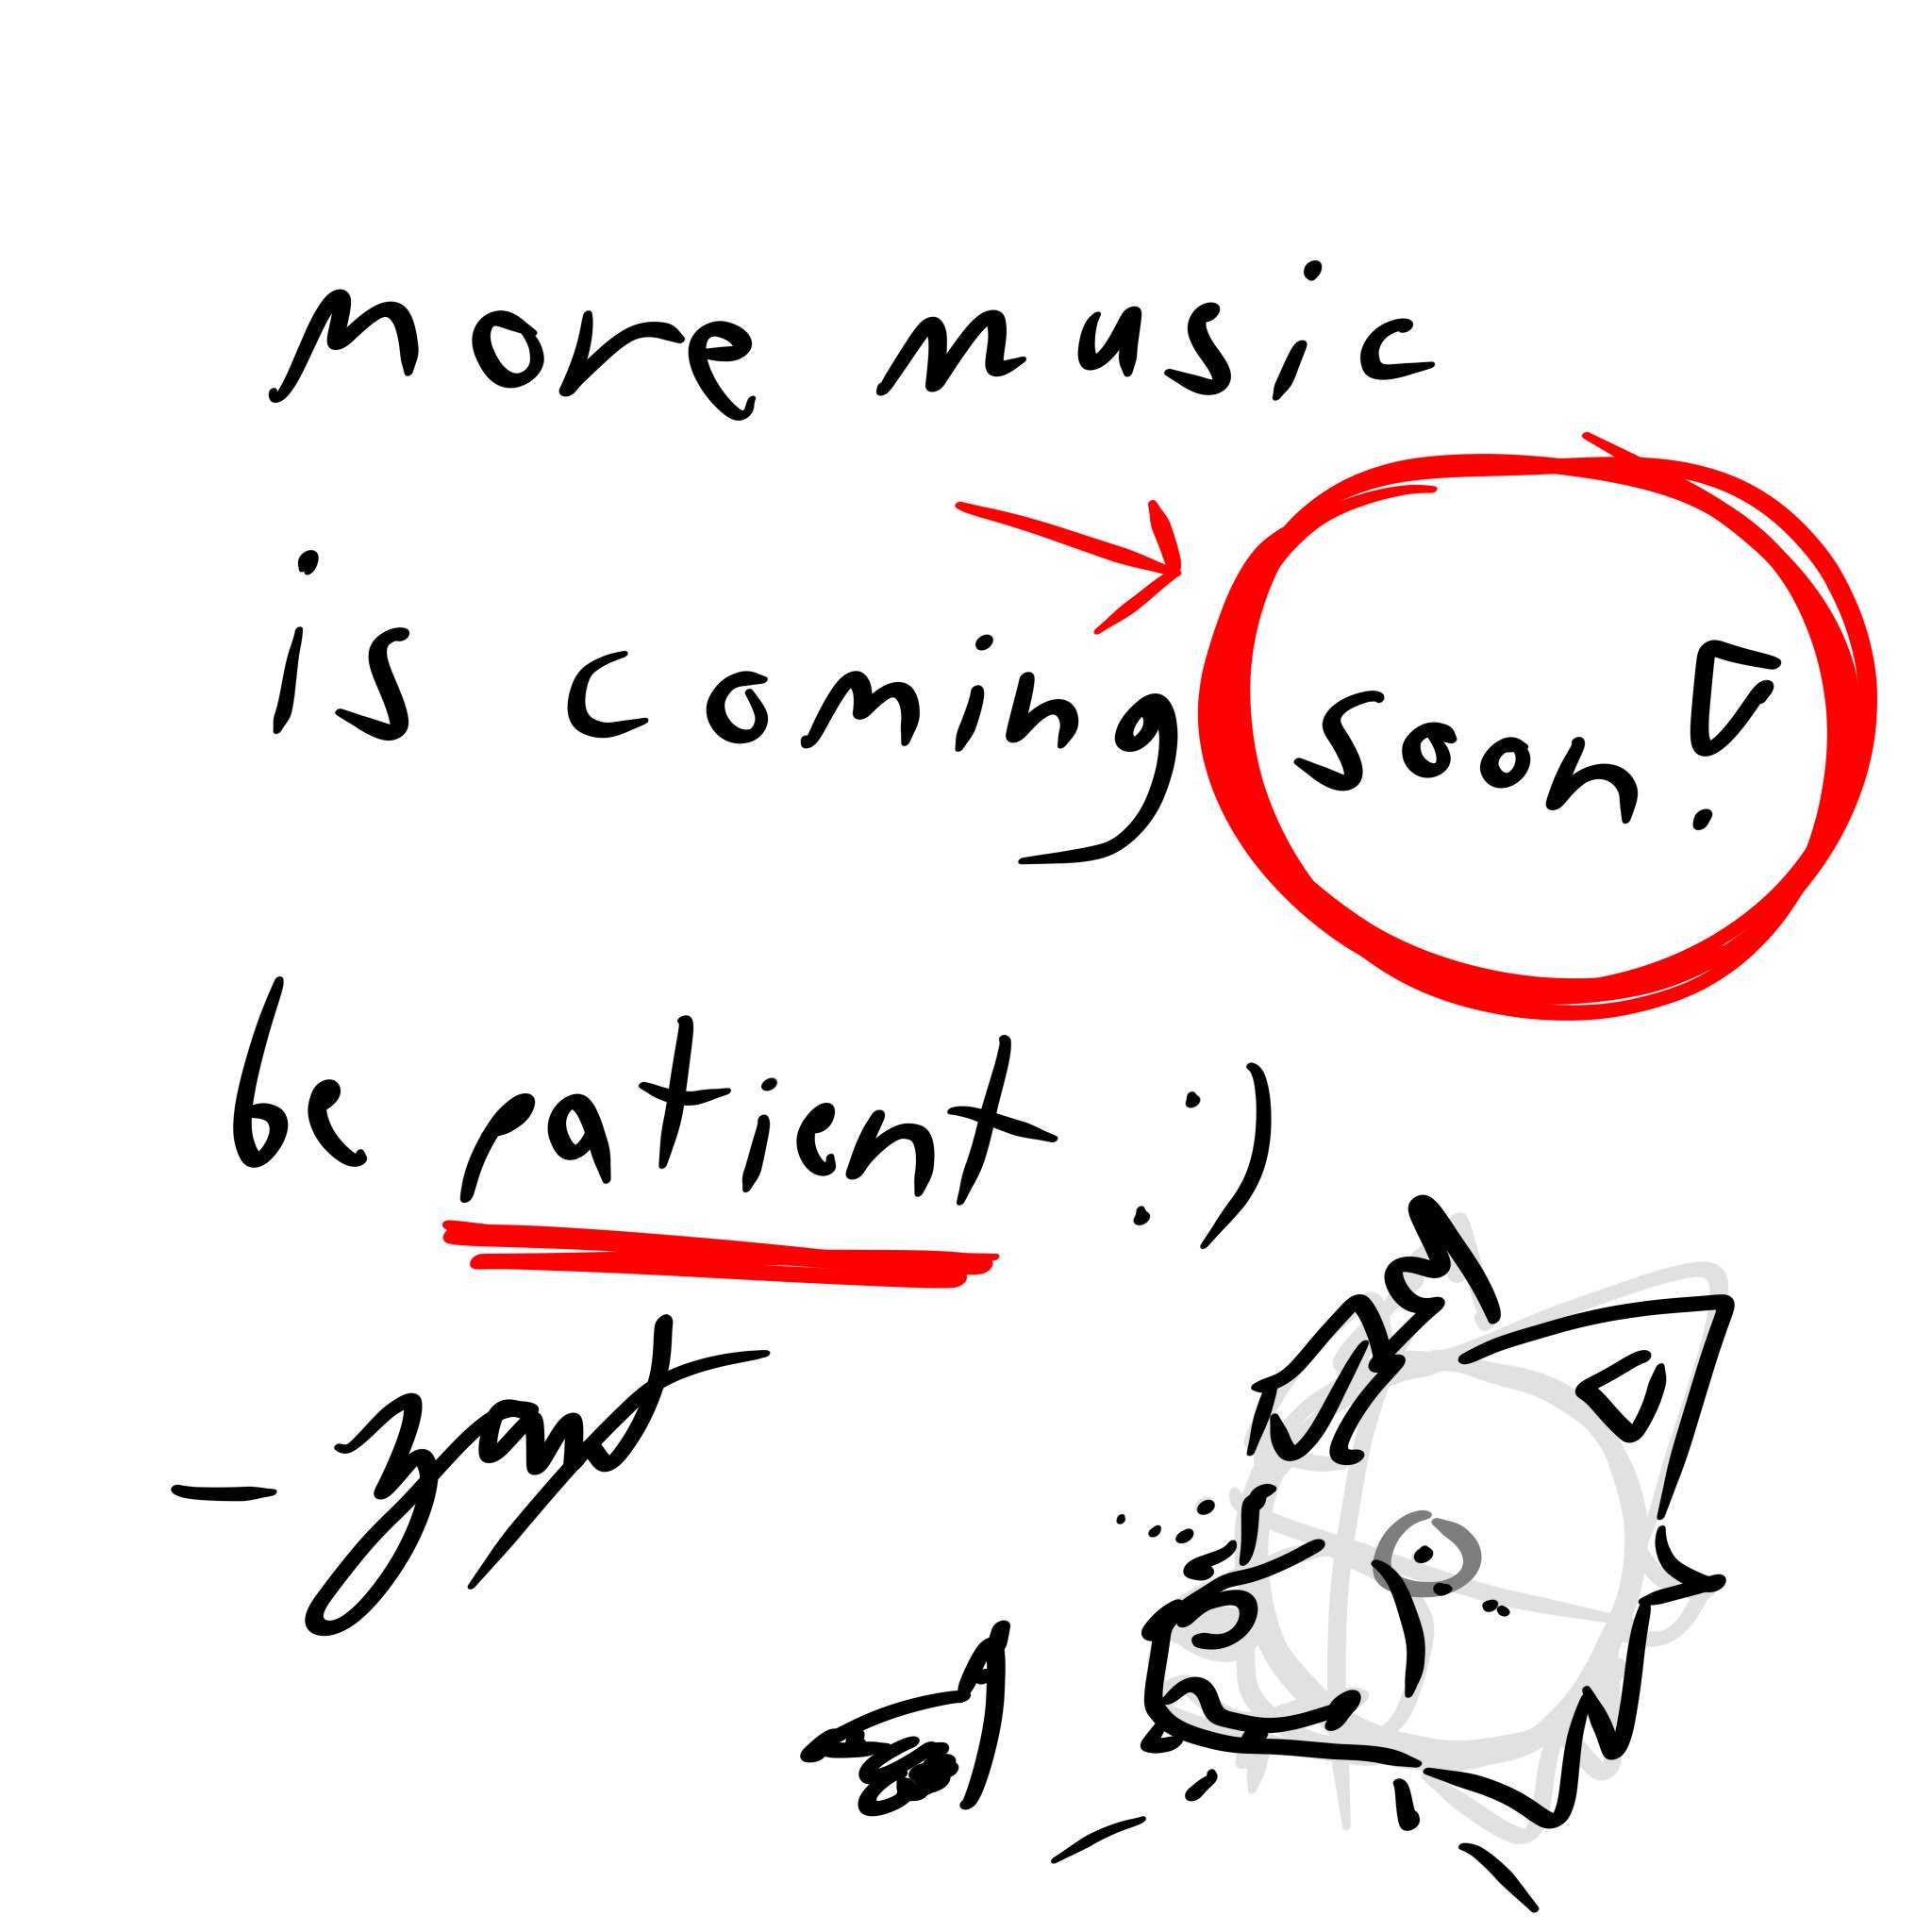 more music
is coming soon!
be patient :)